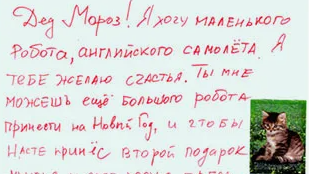 Дед Мороз! Я хочу маленького
робота, английского самолёта. Я
тебе желаю счастья. Ты мне
можешь ещё большого робота
принести на Новый Год, и чтобы
Насте принёс второй подарок